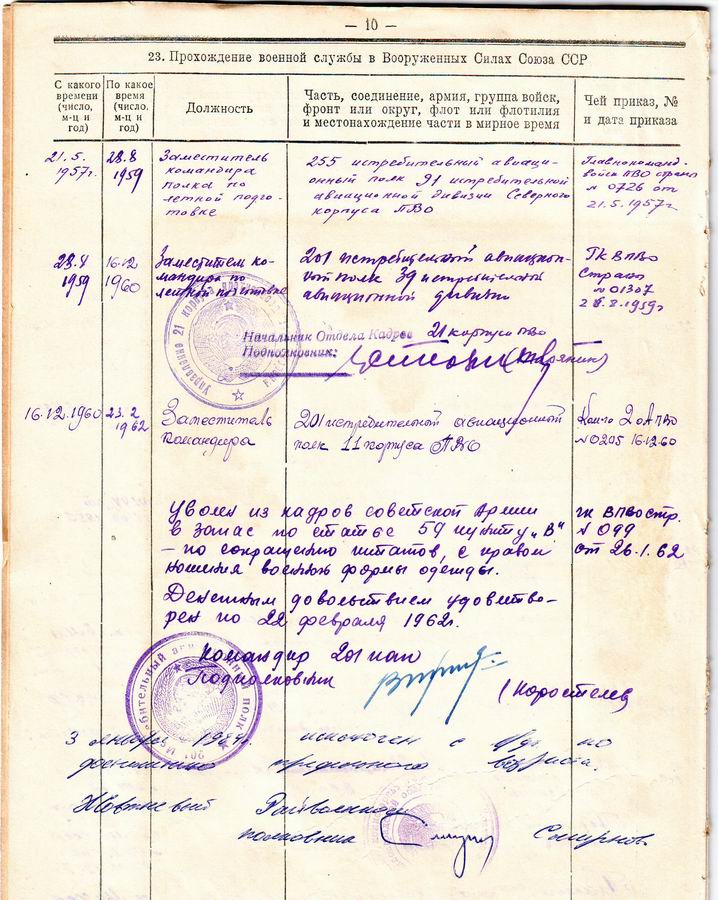 — 10 —
23. Прохождение военной службы в Вооруженных Силах Союза ССР
С какого времени (число, м-ц и год)
По какое время (число, м-ц и год)
Должность
Часть, соединение, армия, группа войск, фронт или округ, флот или флотилия и местонахождение части в мирное время
Чей приказ, № и дата приказа
21.5.
1957г.
28.8
1959
Заместитель
командира
полка по
летной подго-
товке
255 истребительный авиаци-
онный полк 91 истребительной
авиационной дивизии Северного
корпуса ПВО
Главнокоманд.
войск ПВО страны
№ 0726 от
21.5.1957г
28.8
1959
16.12
1960
Заместитель ко-
мандира по
летной подготовке
201 истребительный авиацион-
ный полк 39 истребительной
авиационной дивизии
ГК ВПВО
Страны
№ 01307
28.8.1959г
Управление 21 корпуса
Начальник Отдела Кадров 21 корпуса ПВО
Подполковник:
16.12.1960
23.2
1962
Заместитель
командира
201 истребительный авиационный
полк 11 корпуса ПВО
2 оА ПВО
№ 0205 16.12.60
Уволен из кадров советской Армии
в запас по статье 59 пункту „В"
— по сокращению штатов, с правом
ношения военной формы одежды.
ГК ВПВО стр.
№ 099
от 26.1.62
Денежным довольствием удовлетво-
рен по 22 февраля 1962г.
Командир 201 иап
Подполковник
(Коростелев
3 января
исключен с
по
достижению
предельного
возраста.
Жовтневый
Райвоенком
полковник
Смирнов